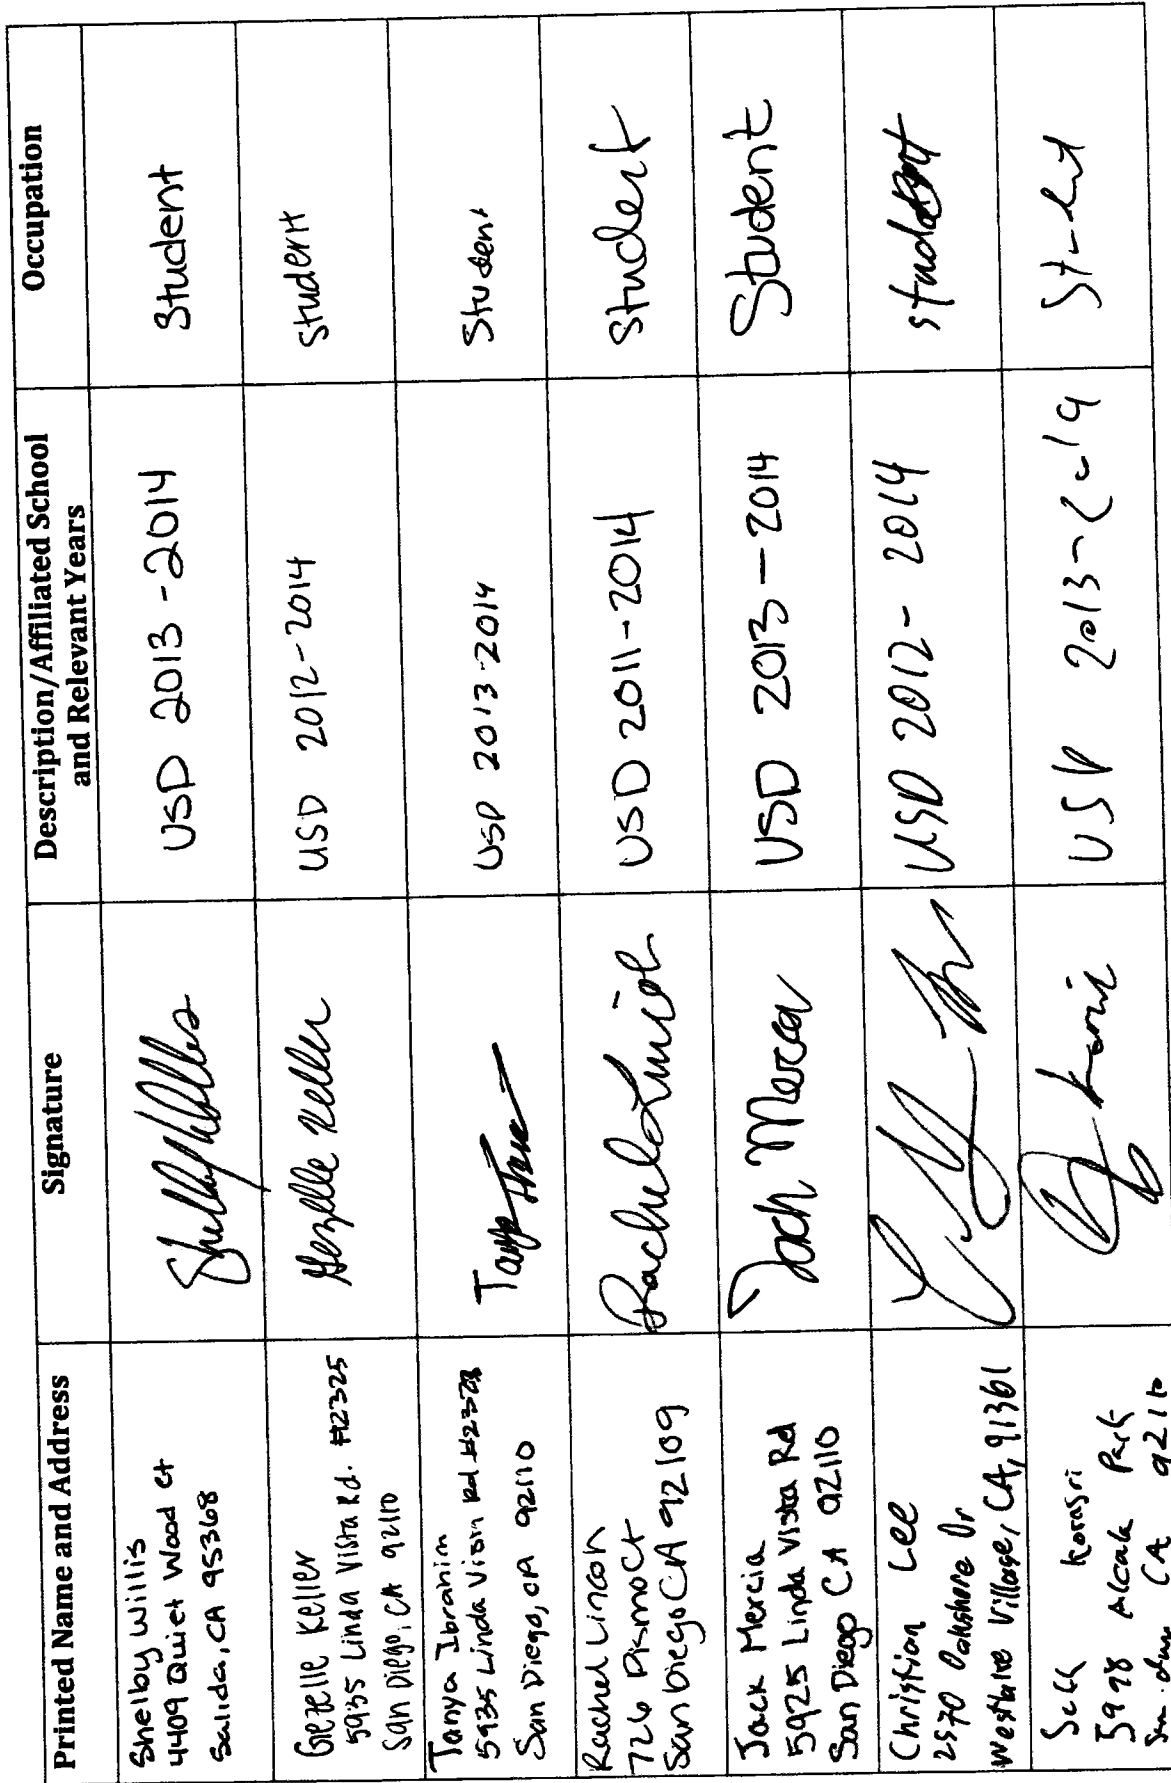 Printed Name and Address
Signature
Description/Affiliated School
and Relevant Years
Occupation
Shelby Willis
4409 Quiet Wood Ct
Salida, CA 95368
USD 2013-2014
Student
Gezelle Keller
5935 Linda Vista Rd. #2325
San Diego, CA 92110
Gezelle Keller
USD 2012-2014
Student
Tanya Ibrahim
5935 Linda Vista Rd
San Diego, CA 92110
Tanya
USD 2013-2014
Student
Rachel Lincoln
726 Pismo Ct
San Diego CA 92109
Rachel Lincoln
USD 2011-2014
Student
Jack Mercia
5925 Linda Vista Rd
San Diego CA 92110
Jack Mercia
USD 2013-2014
Student
Christian Lee
2570 Oakshore Dr
Westlake Village, CA, 91361
USD 2012-2014
student
5998 Alcala Park
CA 92110
USD
Student